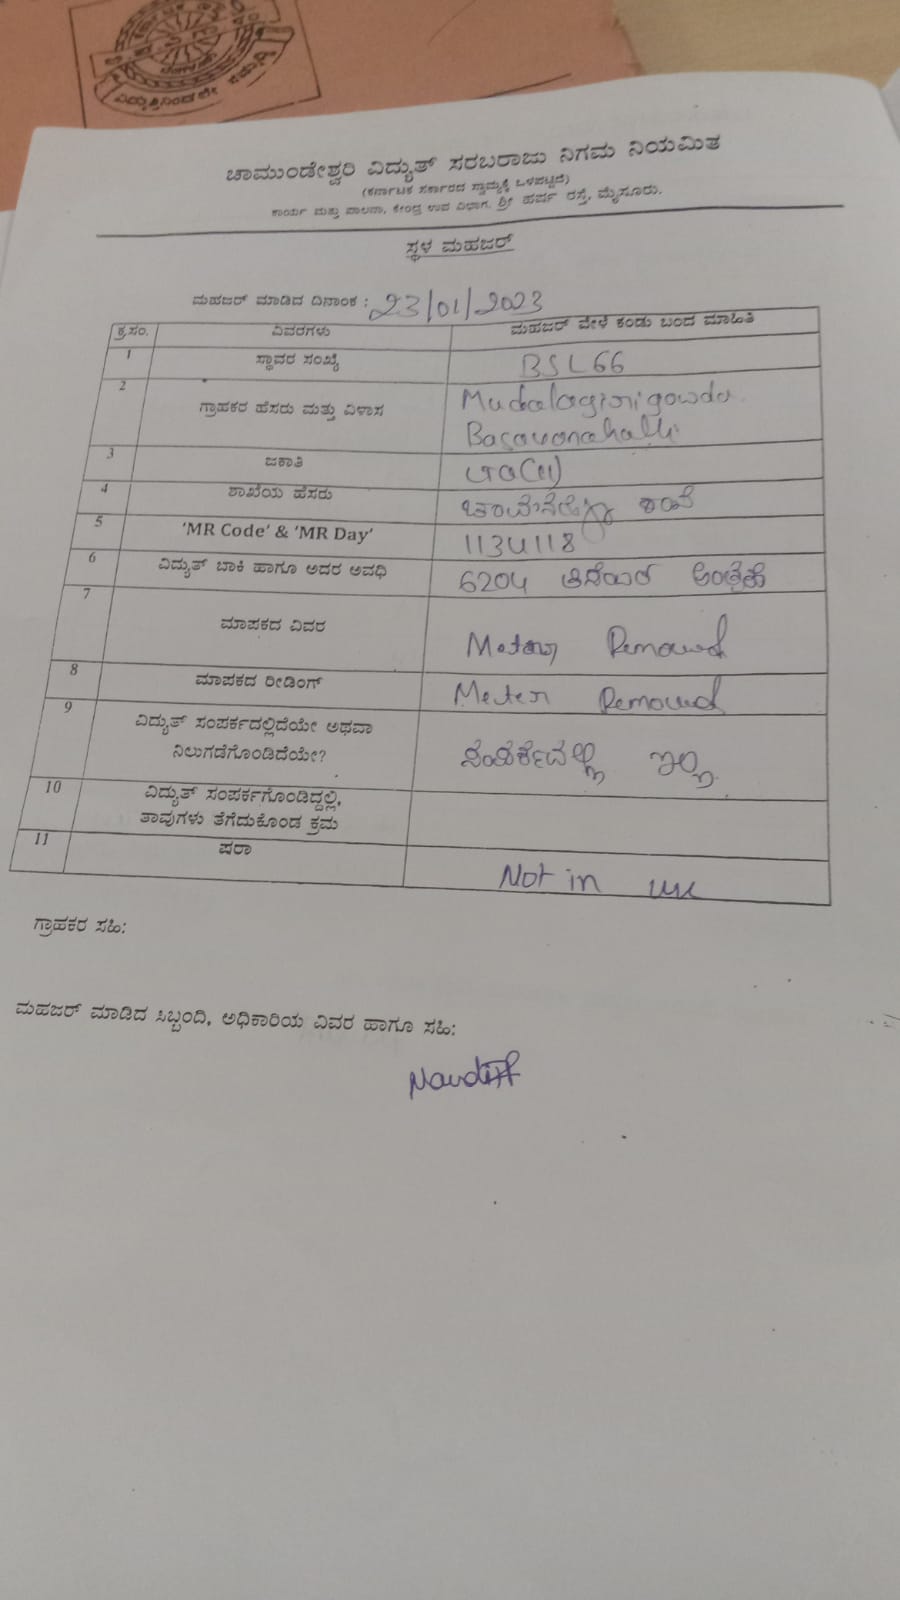 ವಿದ್ಯುತ್ತಿನಿಂದಲೇ ಸಮೃದ್ಧಿ
ಚಾಮುಂಡೇಶ್ವರಿ ವಿದ್ಯುತ್ ಸರಬರಾಜು ನಿಗಮ ನಿಯಮಿತ
(ಕರ್ನಾಟಕ ಸರ್ಕಾರದ ಸ್ವಾಮ್ಯಕ್ಕೆ ಒಳಪಟ್ಟಿದೆ)
ಕಾರ್ಯ ಮತ್ತು ಪಾಲನಾ, ಕೇಂದ್ರ ಉಪ ವಿಭಾಗ, ಶ್ರೀ ಹರ್ಷ ರಸ್ತೆ, ಮೈಸೂರು.
ಸ್ಥಳ ಮಹಜರ್
ಮಹಜರ್ ಮಾಡಿದ ದಿನಾಂಕ : 23/01/2023
ಕ್ರ.ಸಂ. ವಿವರಗಳು ಮಹಜರ್ ವೇಳೆ ಕಂಡು ಬಂದ ಮಾಹಿತಿ
1 ಸ್ಥಾವರ ಸಂಖ್ಯೆ BSL66
2 ಗ್ರಾಹಕರ ಹೆಸರು ಮತ್ತು ವಿಳಾಸ Mudalagirigowda
Basavanahalli
3 ಜಕಾತಿ
4 ಶಾಖೆಯ ಹೆಸರು ಶಾಖೆ
5 'MR Code' & 'MR Day'
6 ವಿದ್ಯುತ್ ಬಾಕಿ ಹಾಗೂ ಅದರ ಅವಧಿ 6204
7 ಮಾಪಕದ ವಿವರ Meter Removed
8 ಮಾಪಕದ ರೀಡಿಂಗ್ Meter Removed
9 ವಿದ್ಯುತ್ ಸಂಪರ್ಕದಲ್ಲಿದೆಯೇ ಅಥವಾ
ನಿಲುಗಡೆಗೊಂಡಿದೆಯೇ? ಸಂಪರ್ಕದಲ್ಲಿ ಇಲ್ಲ
10 ವಿದ್ಯುತ್ ಸಂಪರ್ಕಗೊಂಡಿದ್ದಲ್ಲಿ,
ತಾವುಗಳು ತೆಗೆದುಕೊಂಡ ಕ್ರಮ
11 ಷರಾ Not in use
ಗ್ರಾಹಕರ ಸಹಿ:
ಮಹಜರ್ ಮಾಡಿದ ಸಿಬ್ಬಂದಿ, ಅಧಿಕಾರಿಯ ವಿವರ ಹಾಗೂ ಸಹಿ: